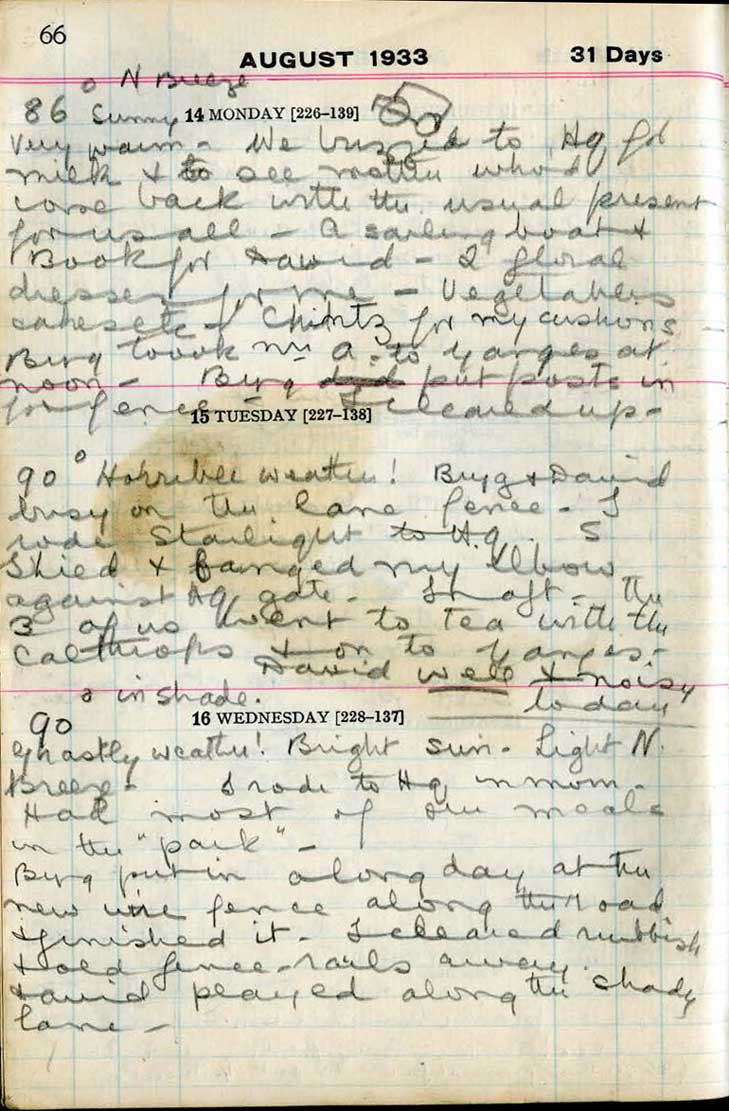 66
AUGUST 1933 31 Days
° N Breeze
86 Sunny 14 MONDAY [226–139]
Very warm - We buzzed to Hq for
milk & to see mother who'd
come back with the usual present
for us all - A sailing boat &
Book for David - 2 floral
dresses for me - Vegetables
cakes etc - Chintz for my cushions
Byng took A. to Yanges at
noon - Byng put posts in
for fence - I cleared up -
15 TUESDAY [227–138]
90° Horrible weather! Byng & David
busy on the lane fence - I
rode Starlight to Hq. S
Shied & banged my Elbow
against Hq gate - In aft - the
3 of us went to Tea with the
Calthrops & on to Yanges -
David well & noisy
today
° in shade.
90 16 WEDNESDAY [228–137]
Ghastly weather! Bright sun - Light N.
Breeze - I rode to Hq in morn -
Had most of our meals
in the "park" -
Byng put in a long day at the
new wire fence along the road
& finished it - I cleared rubbish
& old fence-rails away.
David played along the shady
lane -